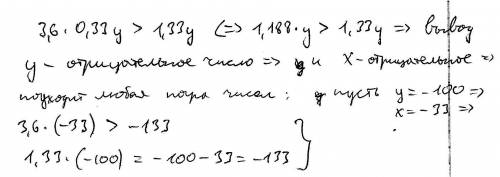 3,6 · 0,33y > 1,33y (=> 1,188·y > 1,33y => вывод
y – отрицательное число => и x – отрицательное =>
подходит любая пара чисел: пусть y = –100 =>
x = –33 =>
3,6 · (–33) > –133
1,33 · (–100) = –100 – 33 = –133